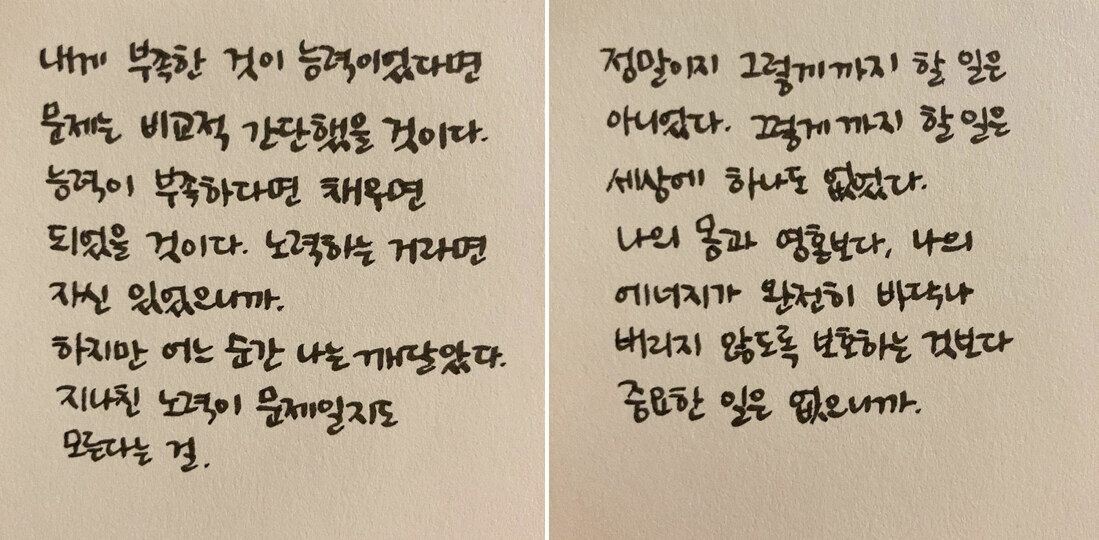 내게 부족한 것이 능력이었다면
문제는 비교적 간단했을 것이다.
능력이 부족하다면 채우면
되었을 것이다. 노력하는 거라면
자신 있었으니까.
하지만 어느 순간 나는 깨달았다.
지나친 노력이 문제일지도
모른다는 걸.
정말이지 그렇게까지 할 일은
아니었다. 그렇게까지 할 일은
세상에 하나도 없었다.
나의 몸과 영혼보다, 나의
에너지가 완전히 바닥나
버리지 않도록 보호하는 것보다
중요한 일은 없으니까.